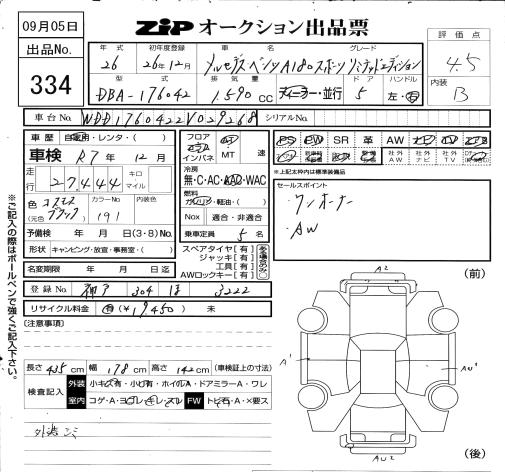 09月05日
ZIP オークション出品票
出品No.
334
評価点
4.5
内装
B
年式 初年度登録 車名 グレード
26 26年12月 メルセデスベンツA180スポーツリミテッドエディション
型式 排気量 ドア ハンドル
DBA-176042 1.590cc ディーラー・並行 5 左・右
車台No. WDD1760422V029268 シリアルNo.
車歴 自家用・レンタ・( )
車検 R7年12月
走行 27,444 キロ マイル
外装色 コスモスブラック (元色) カラーNo. 191
予備検 年 月 日(3・8)No.
形状 キャンピング・放宣・事務室・( )
名変期限 年 月 日迄
フロア インパネ MT 速
冷房
無・C・AC・AAC・WAC
燃料
ガソリン・軽油・( )
Nox 適合・非適合
乗車定員 5名
スペアタイヤ[有]
ジャッキ[有]
工具[有]
AWロックキー[有]
ある場合のみ○
PS PW SR 革 AW ナビ TV
社外AW 社外ナビ 社外TV
*上記太枠内は標準装備品
セールスポイント
・ワンオーナー
・AW
登録No. 神戸 304 は 3222
リサイクル料金 有(¥19450) 未
[注意事項]
長さ435cm 幅178cm 高さ142cm (車検証上の寸法)
検査記入
外装 小キズ有・小凹有・ホイルA・ドアミラーA・ワレ
室内 コゲ・A・ヨゴレ・キレ・スレ FW トビ石・A・×要ス
外装 シミ
※ご記入の際はボールペンで強くご記入下さい。
(前)
A2
A1
AU1
AU2
(後)